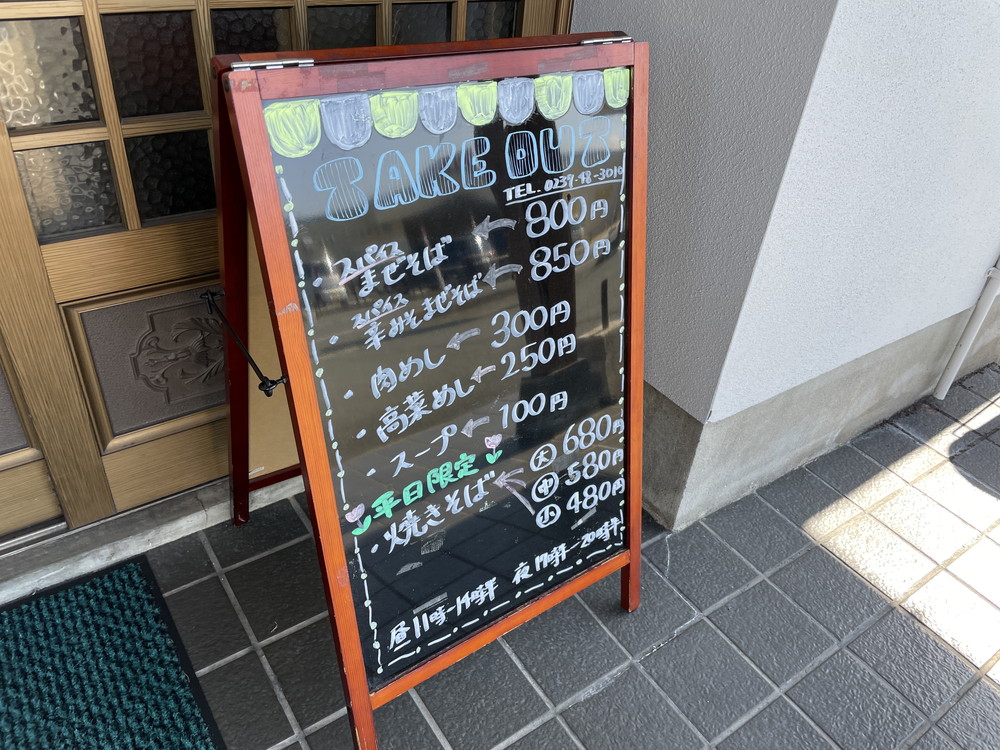 TAKE OUT
TEL. 0239-48-3010
・スパイスまぜそば ← 800円
・スパイス辛みそまぜそば ← 850円
・肉めし ← 300円
・高菜めし ← 250円
・スープ ← 100円
平日限定
・焼きそば ← 大 680円
中 580円
小 480円
昼11時〜14時半 夜17時半〜20時半